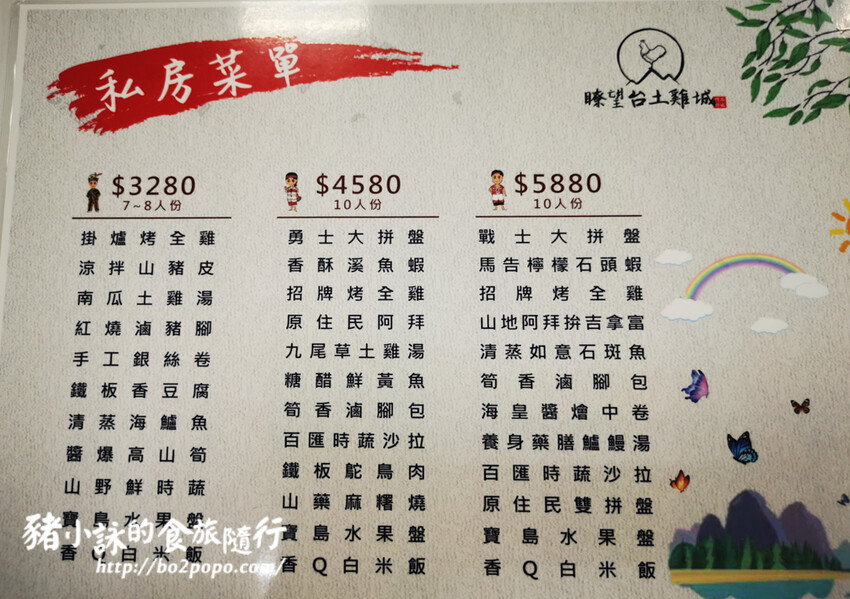 私房菜單
瞭望台土雞城
$3280
7~8人份
掛爐烤全雞
涼拌山豬皮
南瓜土雞湯
紅燒滷豬腳
手工銀絲卷
鐵板香豆腐
清蒸海鱸魚
醬爆高山筍
山野鮮時蔬
寶島水果盤
香Q白米飯
$4580
10人份
勇士大拼盤
香酥溪魚蝦
招牌烤全雞
原住民阿拜
九尾草土雞湯
糖醋鮮黃魚
筍香滷腳包
百匯時蔬沙拉
鐵板鴕鳥肉
山藥麻糬燒
寶島水果盤
香Q白米飯
$5880
10人份
戰士大拼盤
馬告檸檬石頭蝦
招牌烤全雞
山地阿拜拚吉拿富
清蒸如意石斑魚
筍香滷腳包
海皇醬燴中卷
養身藥膳鱸鰻湯
百匯時蔬沙拉
原住民雙拼盤
寶島水果盤
香Q白米飯
豬小詠的食旅隨行
http://bo2popo.com/